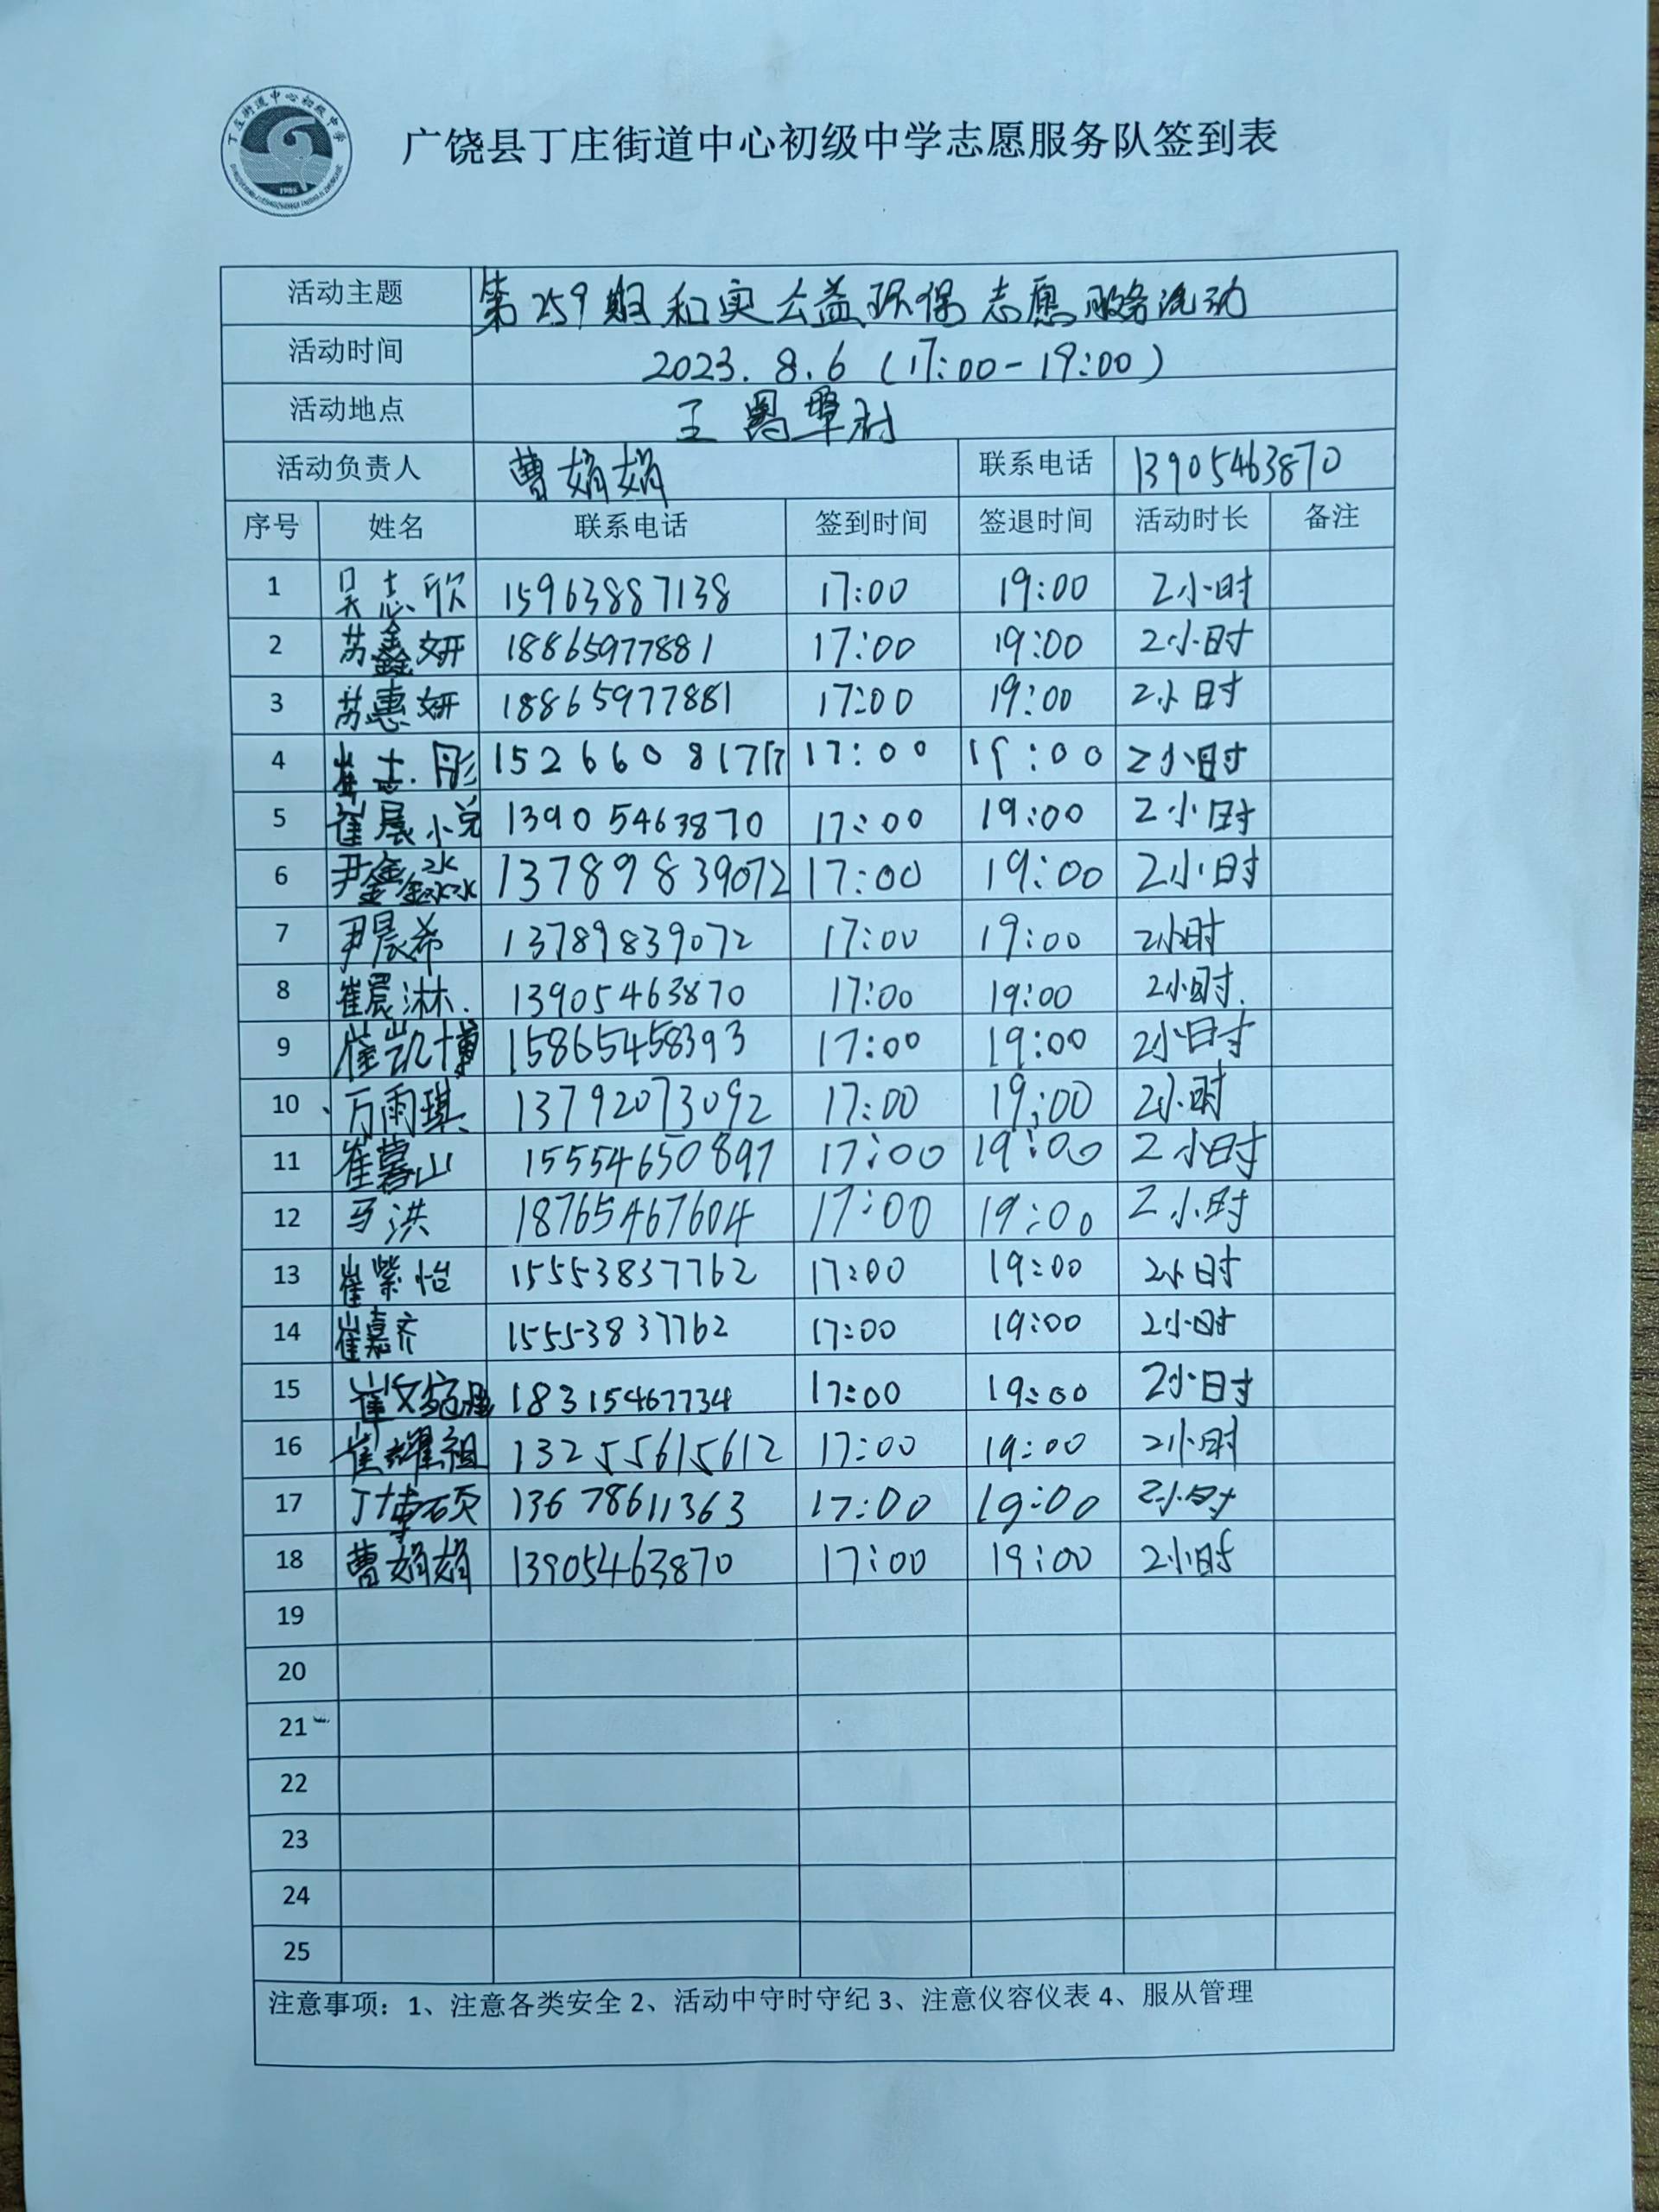 丁庄街道中心初级中学
1985
广饶县丁庄街道中心初级中学志愿服务队签到表
活动主题 第259期和实公益环保志愿服务活动
活动时间 2023.8.6(17:00-19:00)
活动地点 王 村
活动负责人 曹娟娟 联系电话 13905463870
序号 姓名 联系电话 签到时间 签退时间 活动时长 备注
1 吴志欣 15963887138 17:00 19:00 2小时
2 苏鑫妍 18865977881 17:00 19:00 2小时
3 苏惠妍 18865977881 17:00 19:00 2小时
4 崔志彤 17:00 19:00 2小时
5 崔晨悦 13905463870 17:00 19:00 2小时
6 尹鑫淼 13789839072 17:00 19:00 2小时
7 尹晨希 13789839072 17:00 19:00 2小时
8 崔晨淋 13905463870 17:00 19:00 2小时.
9 崔凯博 15865458393 17:00 19:00 2小时
10 万雨琪 13792073092 17:00 19:00 2小时
11 崔 山 15554650897 17:00 19:00 2小时
12 马洪 18765467604 17:00 19:00 2小时
13 崔紫怡 15553837762 17:00 19:00 2小时
14 崔嘉齐 15553837762 17:00 19:00 2小时
15 崔文 18315467734 17:00 19:00 2小时
16 崔耀祖 13255615612 17:00 19:00 2小时
17 丁博硕 13678611363 17:00 19:00 2小时
18 曹娟娟 13905463870 17:00 19:00 2小时
19
20
21
22
23
24
25
注意事项：1、注意各类安全 2、活动中守时守纪 3、注意仪容仪表 4、服从管理